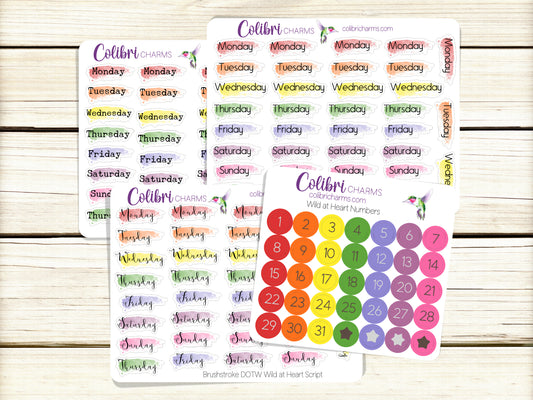 Colibri CHARMS
Monday Monday
Tuesday Tuesday
Wednesday Wednesday
Thursday Thursday
Friday Friday
Saturday Saturday
Sunday
Thursday
Colibri CHARMS
colibricharms.com
Monday Monday Monday Monday
Tuesday Tuesday Tuesday Tuesday
Wednesday Wednesday Wednesday Wednesday
Thursday Thursday Thursday Thursday
Friday Friday Friday Friday
Saturday Saturday Saturday Saturday
Sunday Sunday Sunday Sunday
Monday
Tuesday
Wedne
Colibri CHARMS
Monday Monday Monday
Tuesday Tuesday Tuesday
Wednesday Wednesday Wednesday
Thursday Thursday Thursday
Friday Friday Friday
Saturday Saturday Saturday
Sunday Sunday Sunday
Thursday Friday Saturday Sunday
Brushstroke DOTW Wild at Heart Script
Colibri CHARMS
colibricharms.com
Wild at Heart Numbers
1 2 3 4 5 6 7
8 9 10 11 12 13 14
15 16 17 18 19 20 21
22 23 24 25 26 27 28
29 30 31